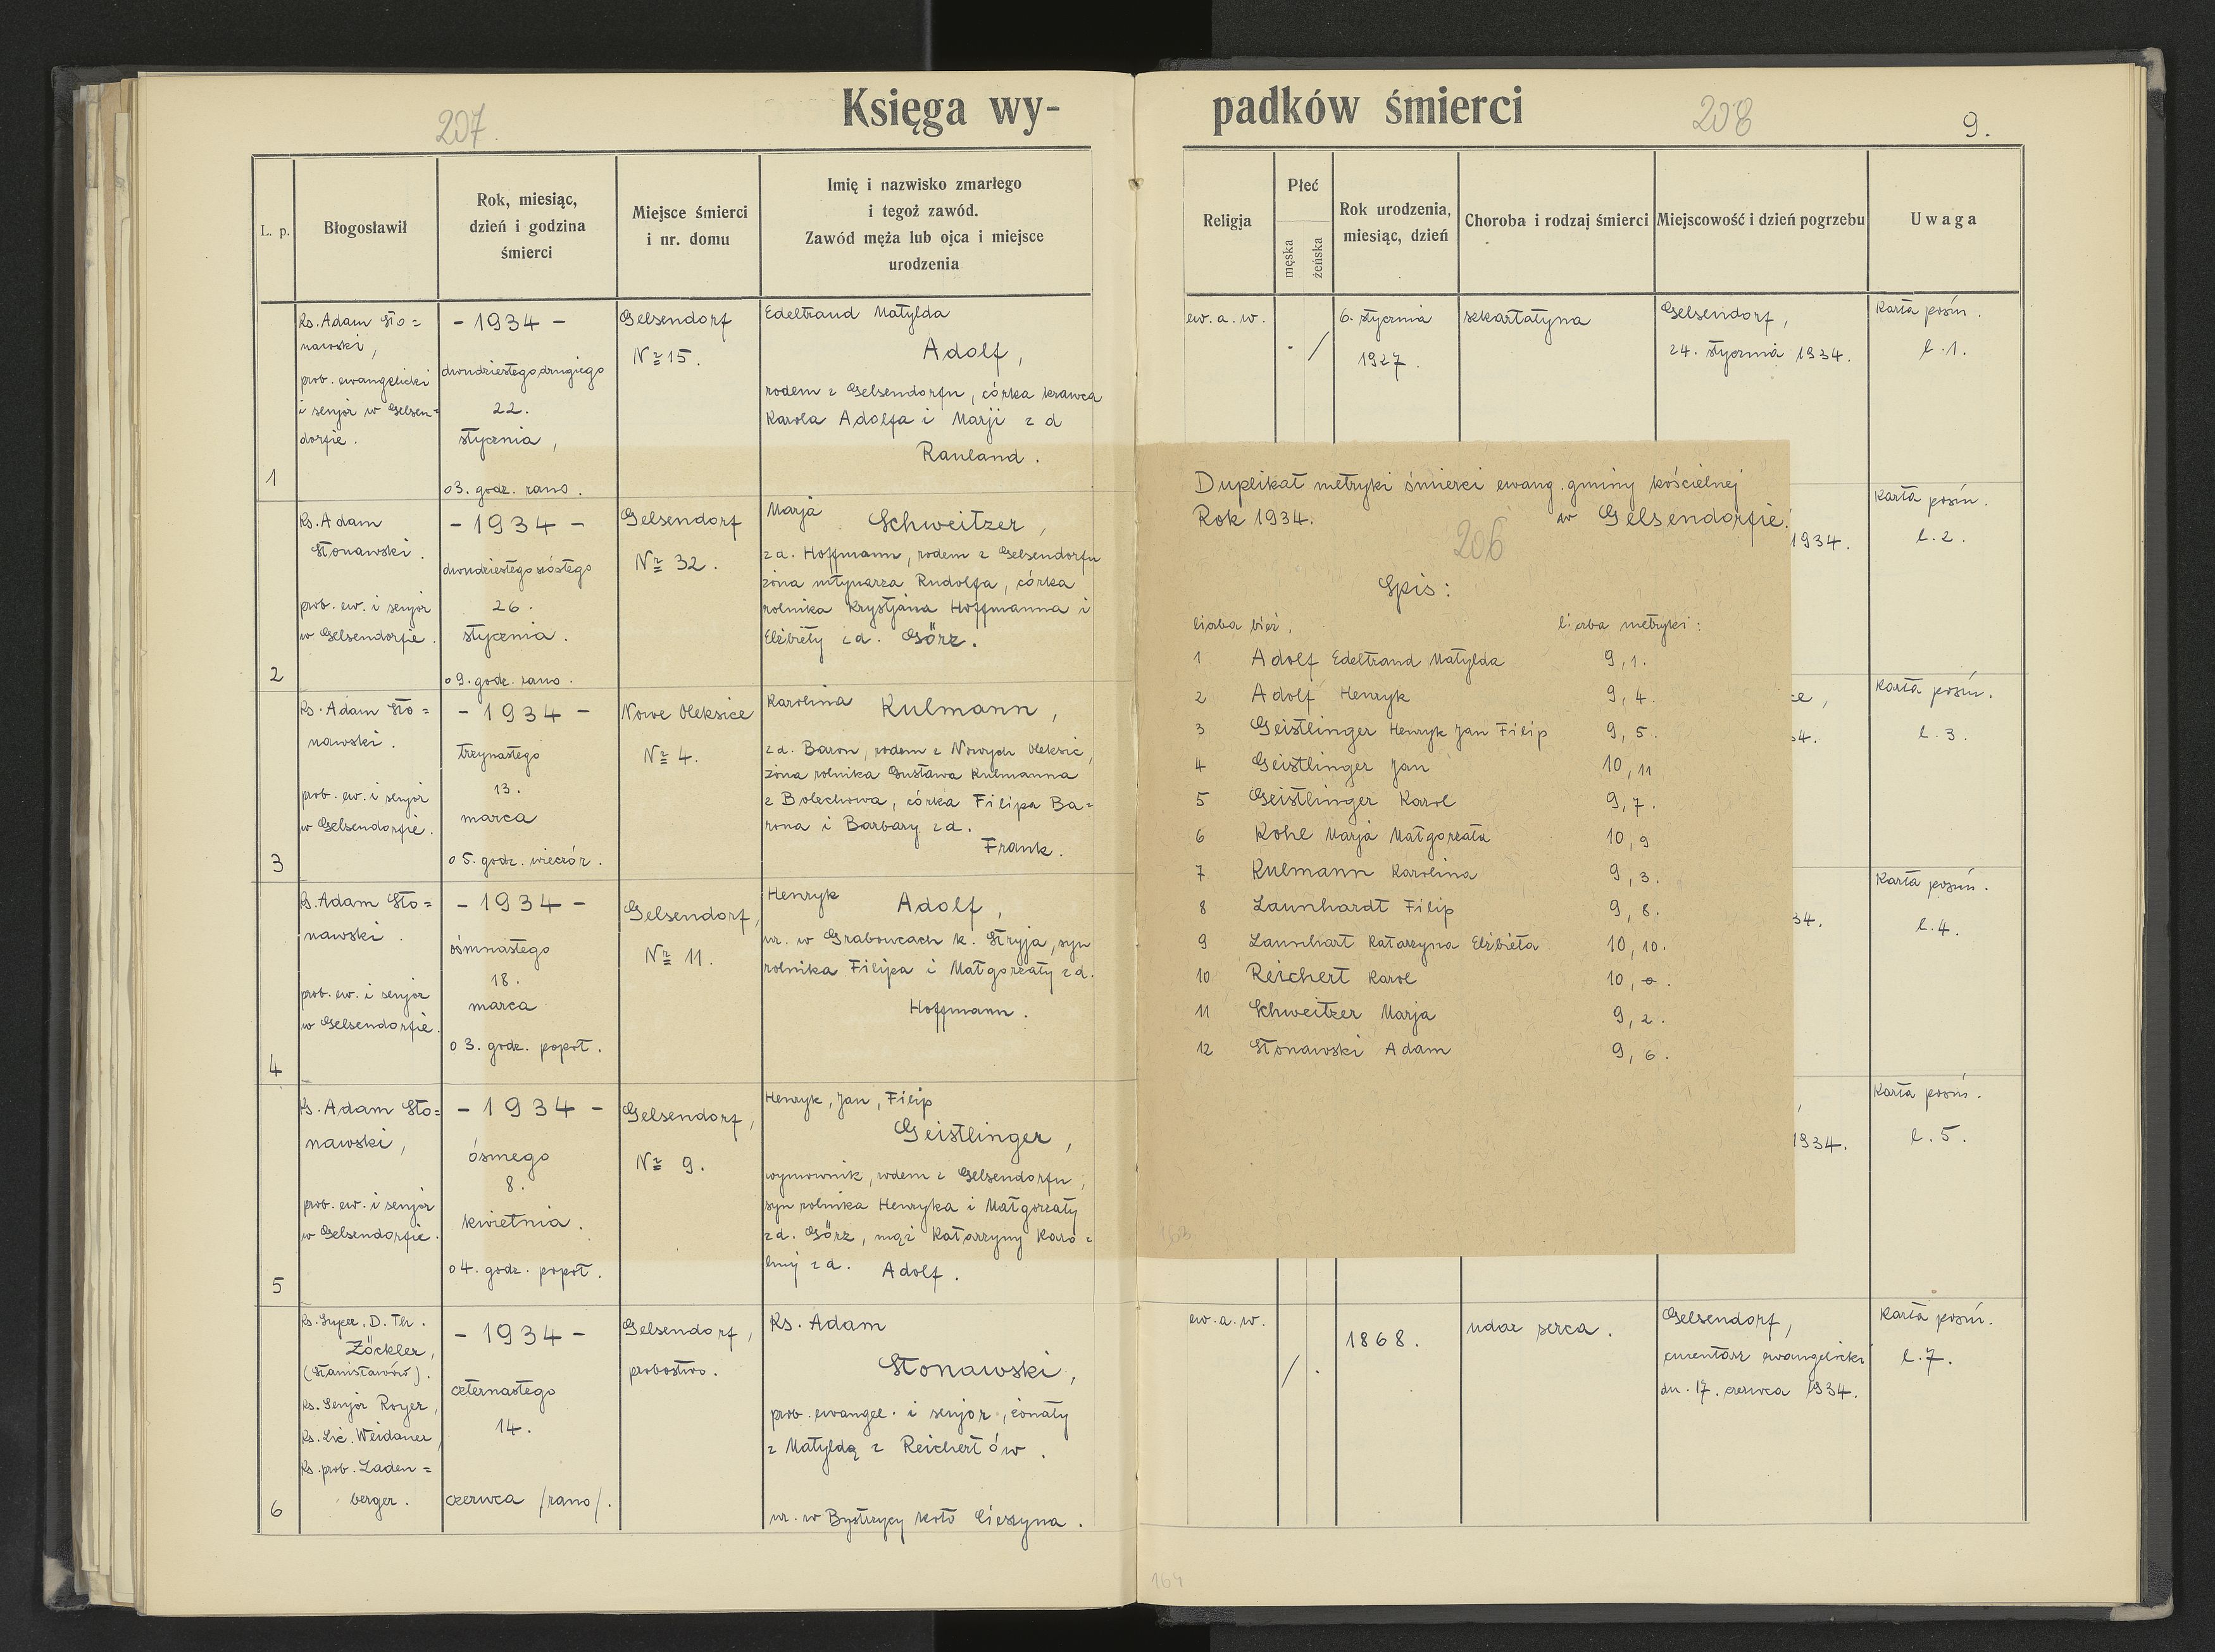 207.
Księga wy-
L. p.
Błogosławił
Rok, miesiąc,
dzień i godzina
śmierci
Miejsce śmierci
i nr. domu
Imię i nazwisko zmarłego
i tegoż zawód.
Zawód męża lub ojca i miejsce
urodzenia
1
Ks. Adam Sto=
nawski,
prob. ewangelicki
i senjor w Gelsen=
dorfie.
- 1934 -
dwudziestego drugiego
22.
stycznia,
o 3. godz. rano.
Gelsendorf
Nr 15.
Edeltraud Matylda
Adolf,
rodem z Gelsendorfu, córka krawca
Karola Adolfa i Marji z d
Rauland.
2
Ks. Adam
Stonawski.
prob. ew. i senjor
w Gelsendorfie.
- 1934 -
dwudziestego szóstego
26.
stycznia.
o 9. godz. rano.
Gelsendorf
Nr 32.
Marja
Schweitzer,
z d. Hoffmann, rodem z Gelsendorfu
żona młynarza Rudolfa, córka
rolnika Krystjana Hoffmanna i
Elżbiety z d. Görz.
3
Ks. Adam Sto=
nawski.
prob. ew. i senjor
w Gelsendorfie.
- 1934 -
trzynastego
13.
marca
o 5. godz. wieczór.
Nowe Oleksice
Nr 4.
Karolina
Kulmann,
z d. Baron, rodem z Nowych Oleksic,
żona rolnika Gustawa Kulmanna
z Bolechowa, córka Filipa Ba=
rona i Barbary z d.
Frank.
4
Ks. Adam Sto=
nawski.
prob. ew. i senjor
w Gelsendorfie.
- 1934 -
ośmnastego
18.
marca
o 3. godz. popoł.
Gelsendorf,
Nr 11.
Henryk
Adolf,
ur. w Grabowcach k. Stryja, syn
rolnika Filipa i Małgorzaty z d.
Hoffmann.
5
Ks. Adam Sto=
nawski,
prob. ew. i senjor
w Gelsendorfie.
- 1934 -
ósmego
8.
kwietnia.
o 4. godz. popoł.
Gelsendorf,
Nr 9.
Henryk, Jan, Filip
Geistlinger,
wymownik, rodem z Gelsendorfu,
syn rolnika Henryka i Małgorzaty
z d. Görz, mąż Katarzyny Karo=
liny z d. Adolf.
6
Ks. Super. D. Th.
Zöckler,
(Stanisławów).
Ks. Senjor Royer,
Ks. Lic. Weidauer,
Ks. prob. Laden=
berger.
- 1934 -
czternastego
14.
czerwca /rano/.
Gelsendorf,
probostwo.
Ks. Adam
Stonawski,
prob. ewangel. i senjor, żonaty
z Matyldą z Reichertów.
ur. w Bystrzycy koło Cieszyna.
padków śmierci
208
9.
Religja
Płeć
męska
żeńska
Rok urodzenia,
miesiąc, dzień
Choroba i rodzaj śmierci
Miejscowość i dzień pogrzebu
Uwaga
ew. a. w.
. /
6. stycznia
1927.
szkarlatyna
Gelsendorf,
24. stycznia 1934.
Karta pośm.
l. 1.
Duplikat metryki śmierci ewang. gminy kościelnej
Rok 1934. w Gelsendorfie.
206
Spis:
liczba bież. liczba metryki:
1 Adolf Edeltraud Matylda 9, 1.
2 Adolf Henryk 9, 4.
3 Geistlinger Henryk Jan Filip 9, 5.
4 Geistlinger Jan 10, 11
5 Geistlinger Karol 9, 7.
6 Kohl Marja Małgorzata 10, 9
7 Kulmann Karolina 9, 3.
8 Launhardt Filip 9, 8.
9 Launhart Katarzyna Elżbieta 10, 10.
10 Reichert Karol 10, o.
11 Schweitzer Marja 9, 2.
12 Stonawski Adam 9, 6.
163
1934.
Karta pośm.
l. 2.
ce,
34.
Karta pośm.
l. 3.
34.
Karta pośm.
l. 4.
,
1934.
Karta pośm.
l. 5.
ew. a. w.
/ .
1868.
udar serca.
Gelsendorf,
cmentarz ewangelicki
dn. 17. czerwca 1934.
Karta pośm.
l. 7.
164